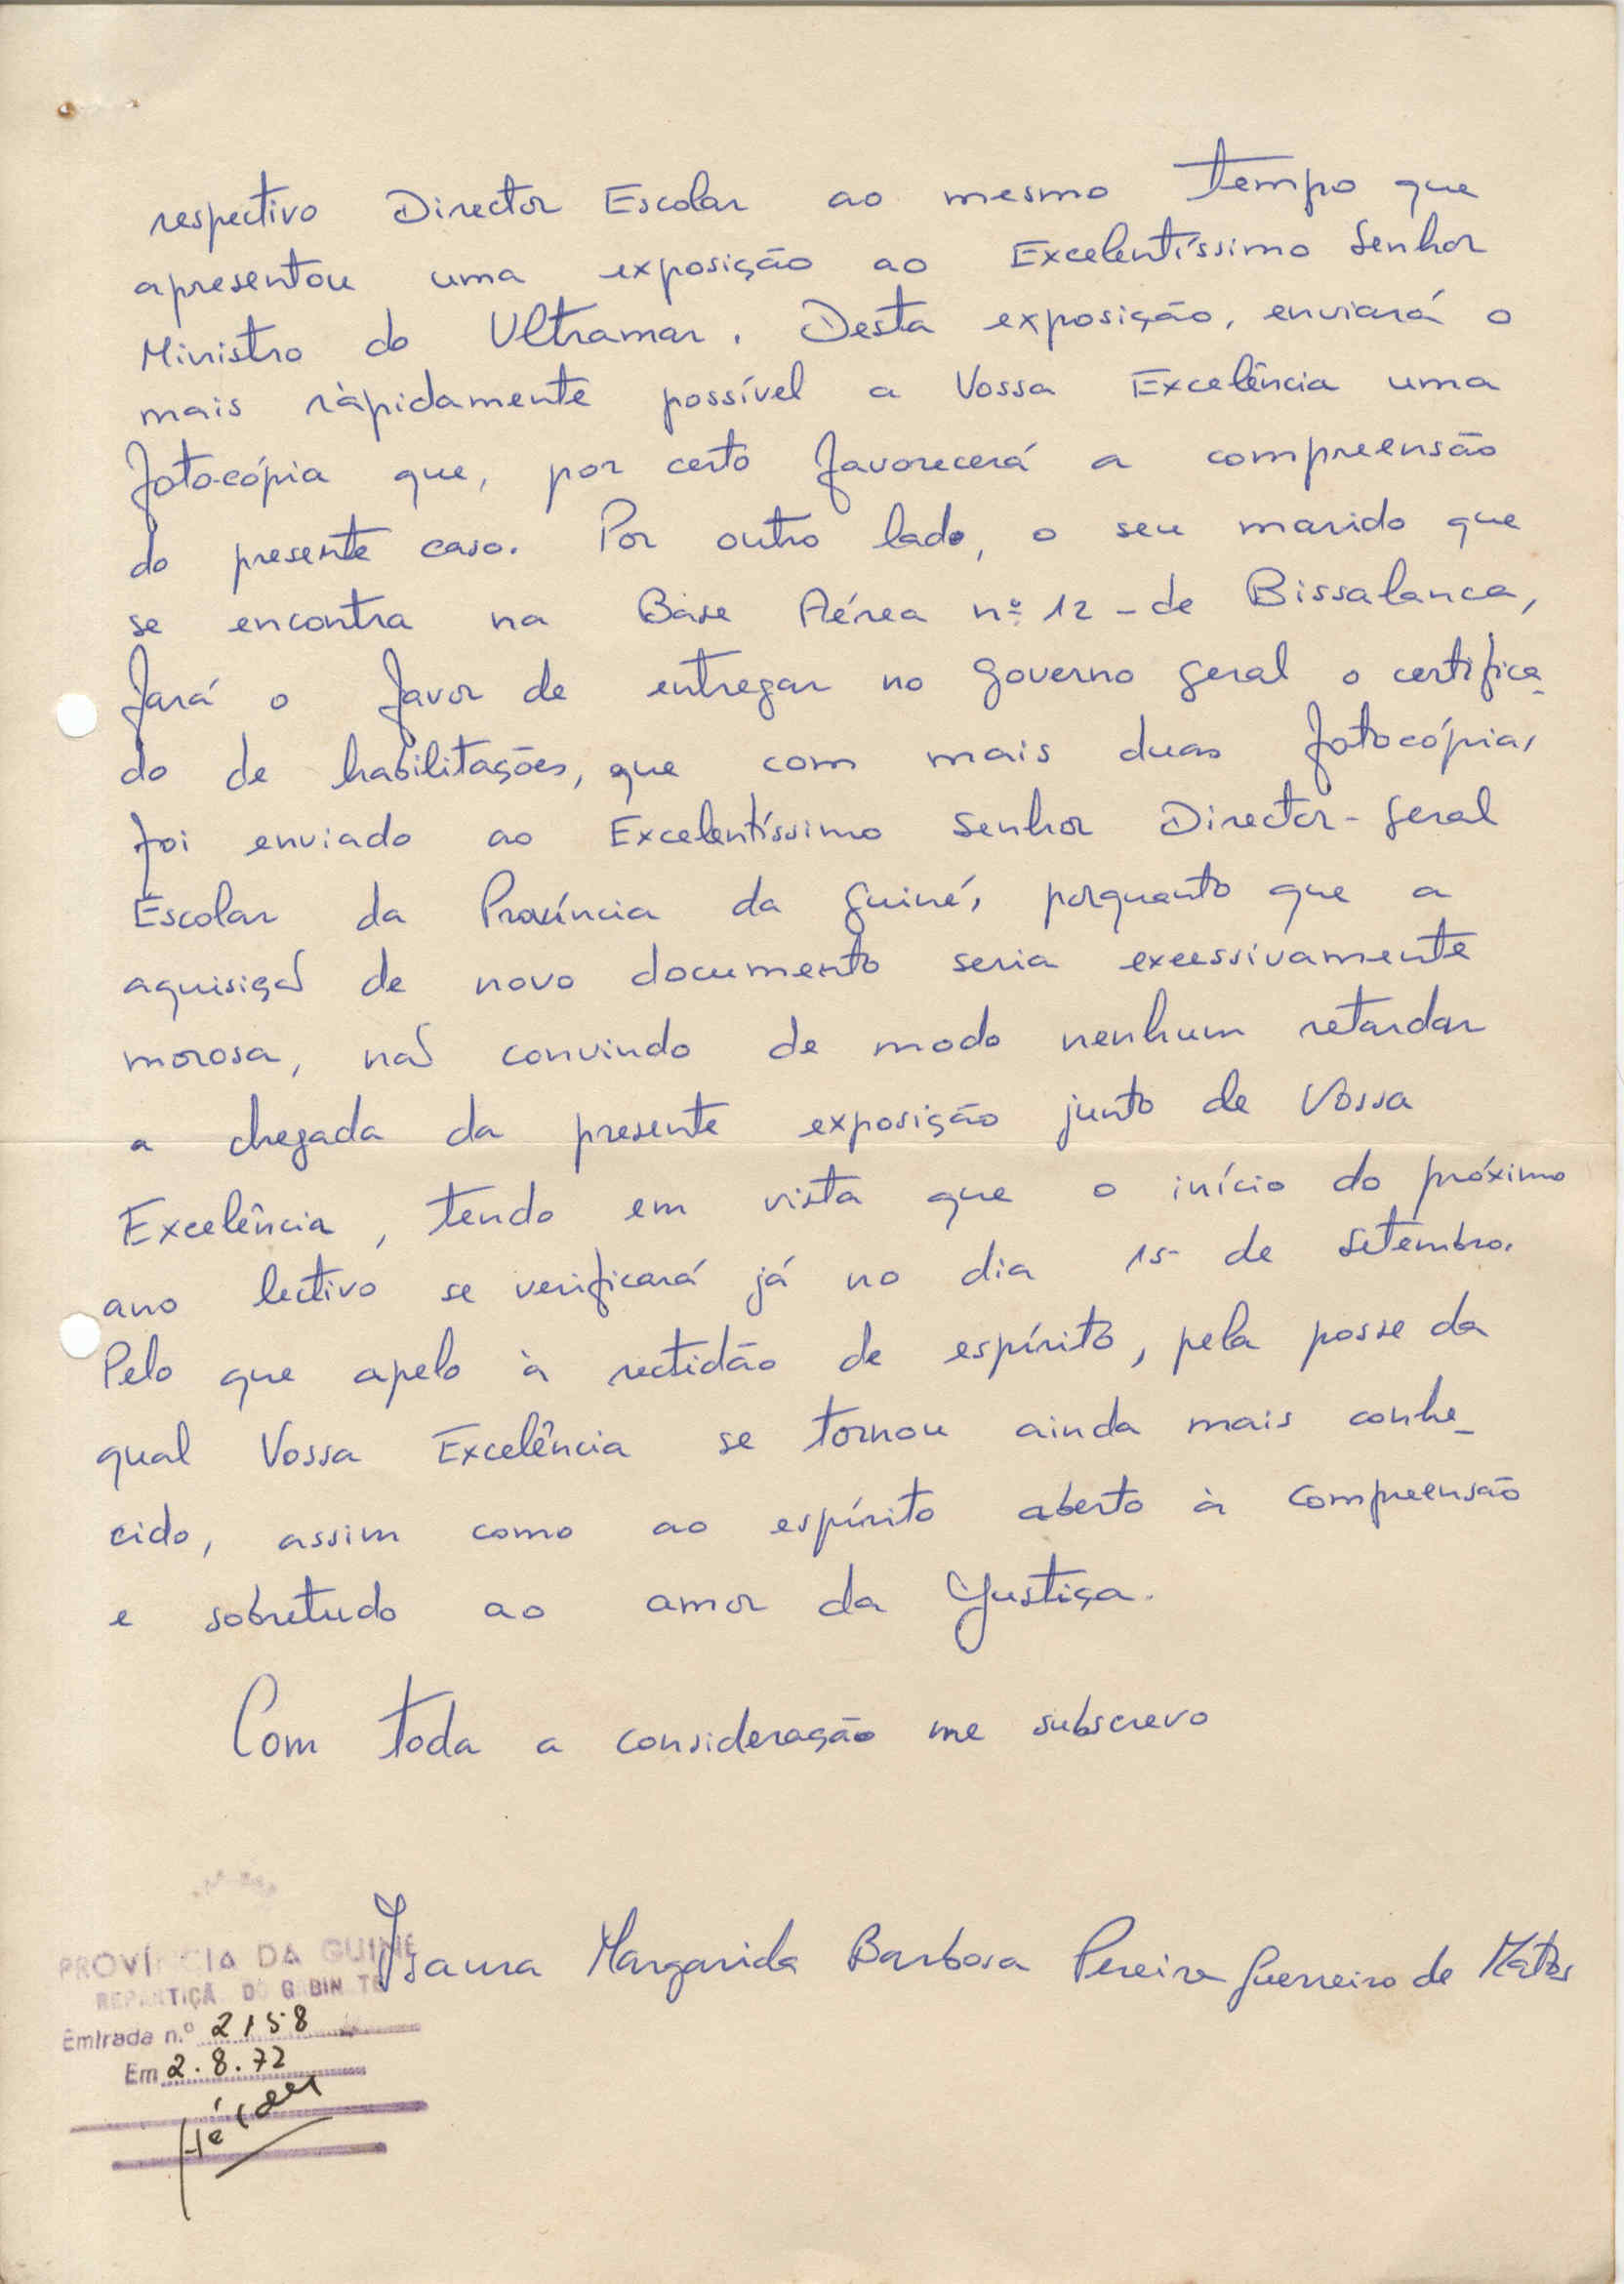 respectivo Director Escolar ao mesmo tempo que
apresentou uma exposição ao Excelentíssimo Senhor
Ministro do Ultramar. Desta exposição, enviará o
mais ràpidamente possível a Vossa Excelência uma
fotocópia que, por certo favorecerá a compreensão
do presente caso. Por outro lado, o seu marido que
se encontra na Base Aérea nº 12 - de Bissalanca,
fará o favor de entregar no governo geral o certifica-
do de habilitações, que com mais duas fotocópias
foi enviado ao Excelentíssimo Senhor Director-geral
Escolar da Província da Guiné, porquanto que a
aquisição de novo documento seria excessivamente
morosa, não convindo de modo nenhum retardar
a chegada da presente exposição junto de Vossa
Excelência, tendo em vista que o início do próximo
ano lectivo se verificará já no dia 15 de Setembro.
Pelo que apelo à rectidão de espírito, pela posse da
qual Vossa Excelência se tornou ainda mais conhe-
cido, assim como ao espírito aberto à compreensão
e sobretudo ao amor da Justiça.
Com toda a consideração me subscrevo
Isaura Margarida Barbosa Pereira Guerreiro de Matos
PROVÍNCIA DA GUINÉ
REPARTIÇÃO DO GABINETE
Entrada n.º 2158
Em 2.8.72